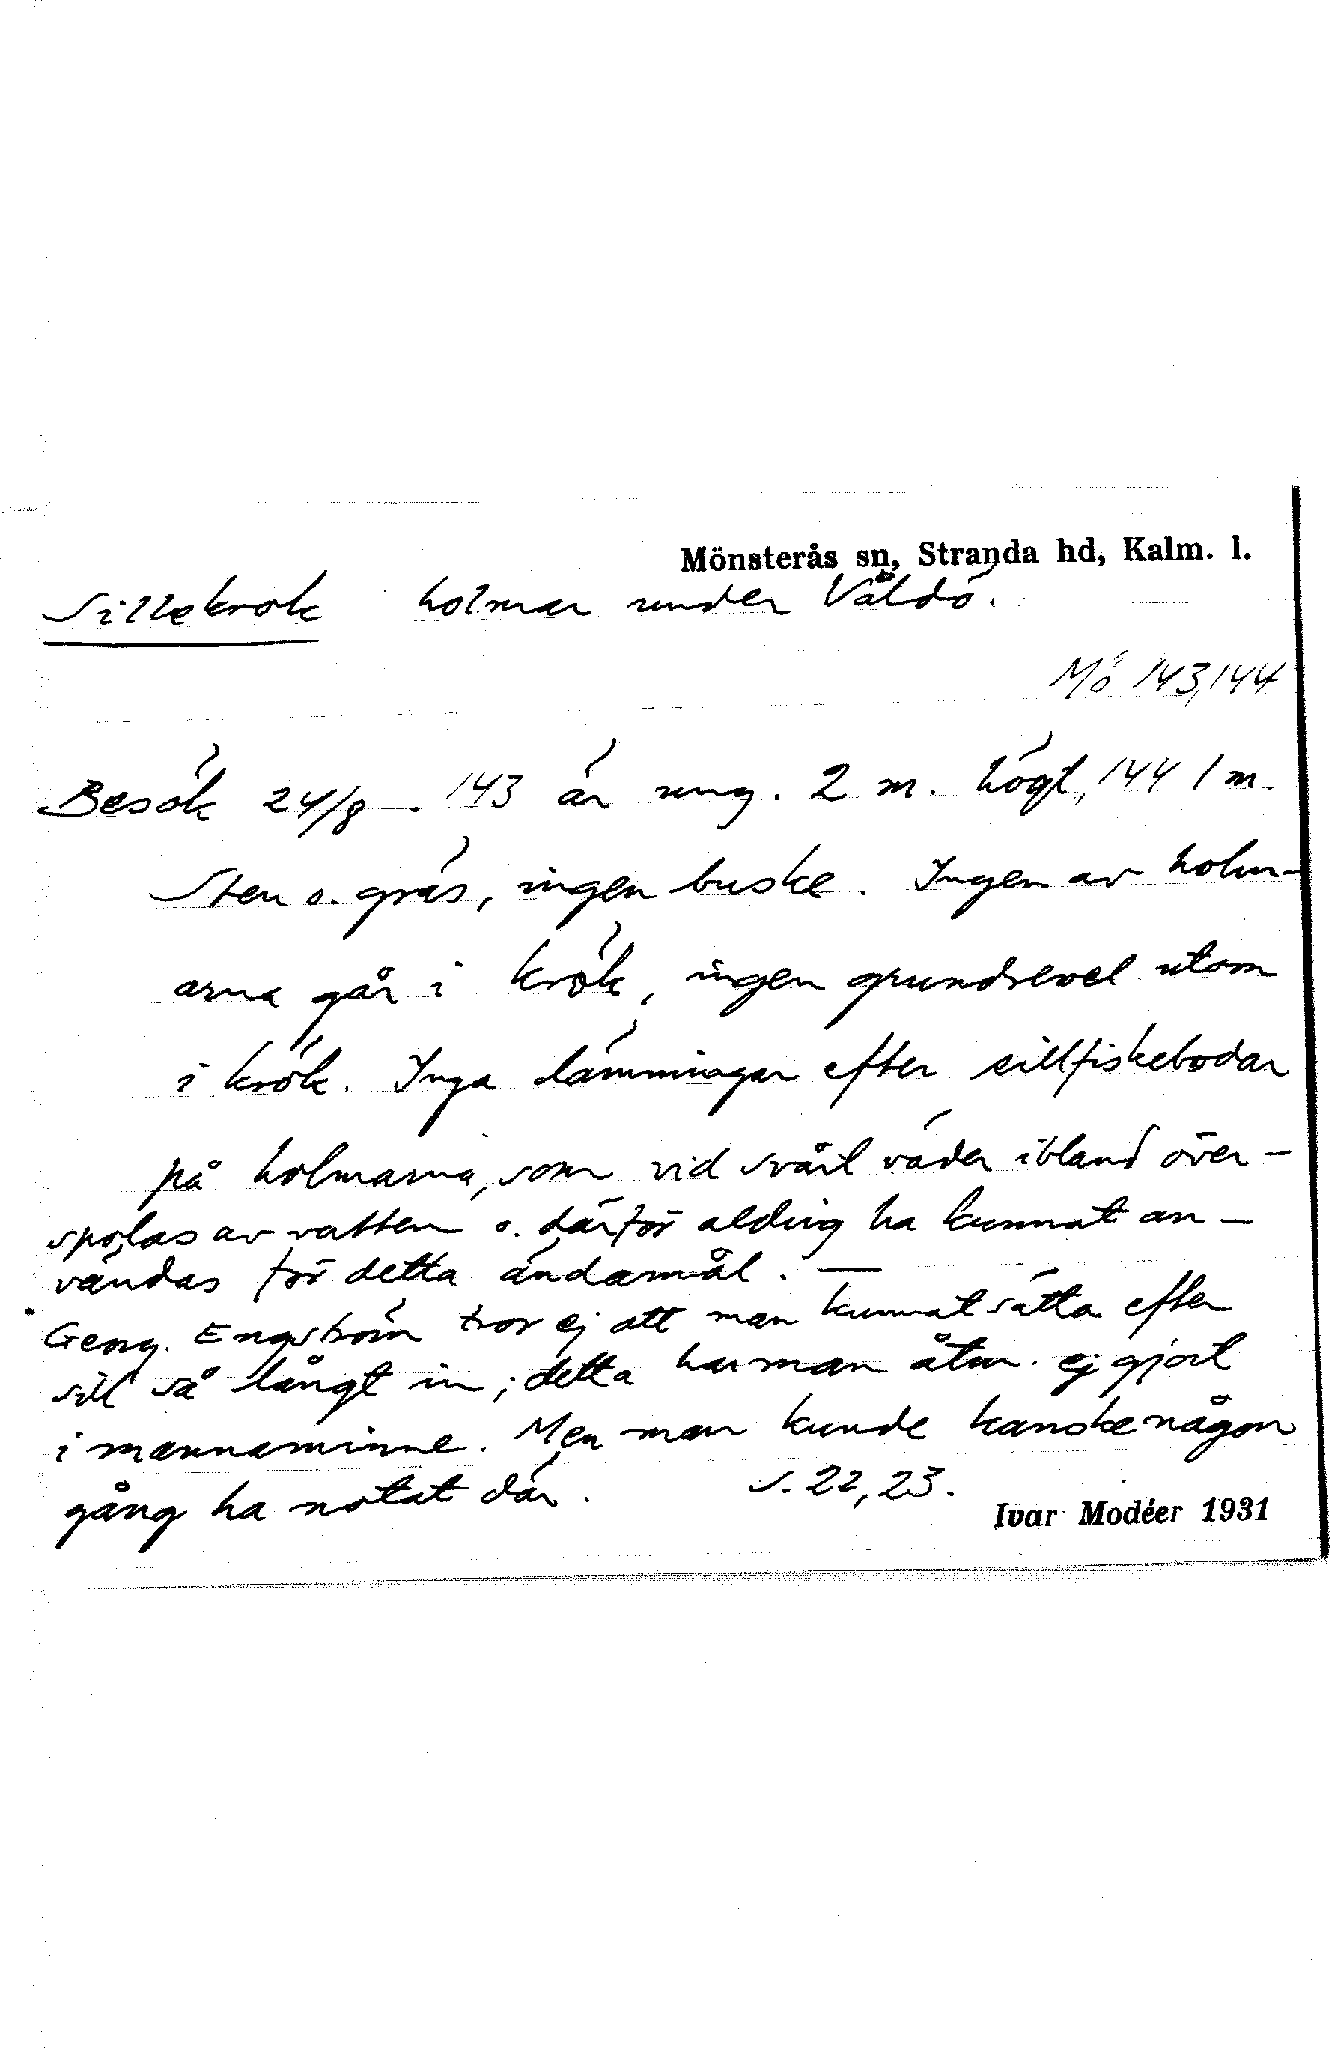 Mönsterås sn, Stranda hd, Kalm. l.
Sillekrok holmar under Våldö.
Mö 143,144
Besök 24/8 -. 143 är ung. 2 m. högt, 144 1 m.
Sten o. gräs, ingen buske. Ingen av holm-
arna går i krök, ingen grundrevel utom
i krök. Inga lämningar efter sillfiskebodar
på holmarna, som vid svårt väder ibland över-
spolas av vatten o. därför aldrig ha kunnat an-
vändas för detta ändamål. —
Georg. Engström tror ej att man kunnat sätta efter
sill så långt in; detta har man åtm. ej gjort
i mannaminne. Men man kunde kanske någon
gång ha notat där. s. 22, 23.
Ivar Modéer 1931